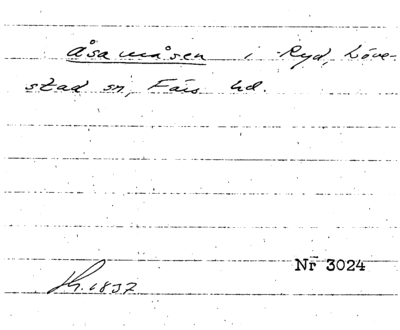 Åsamåsen i Ryd, Löve-
stad sn, Färs hd.
Nr 3024
h. 1837